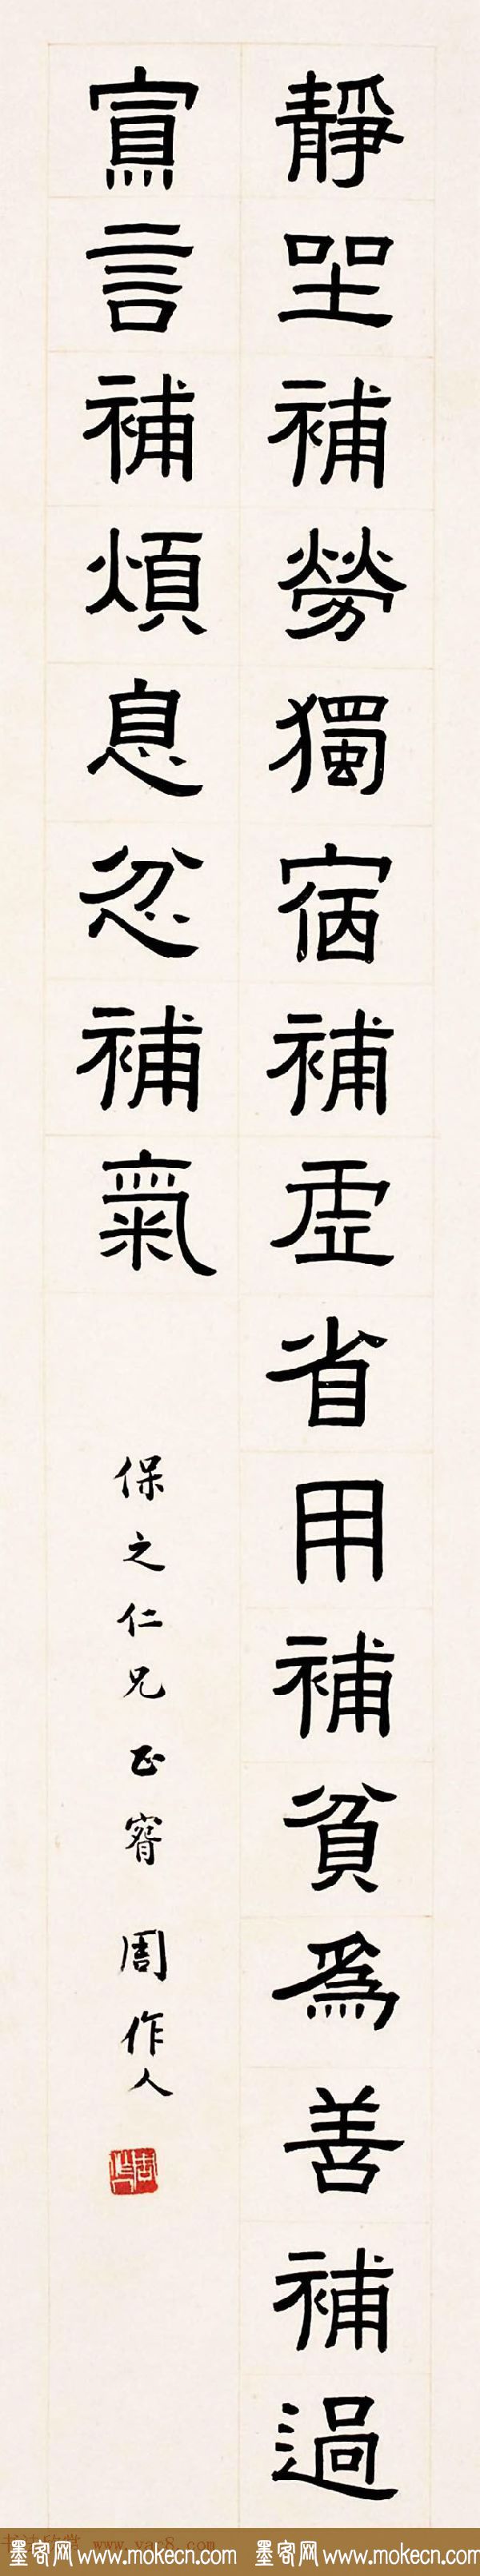 靜坐補勞獨宿補虛省用補貧爲善補過
寡言補煩息忿補氣
保之仁兄正 周作人
书法欣赏 www.yac8.com
墨客网 www.mokecn.com 墨客网 www.mokecn.com